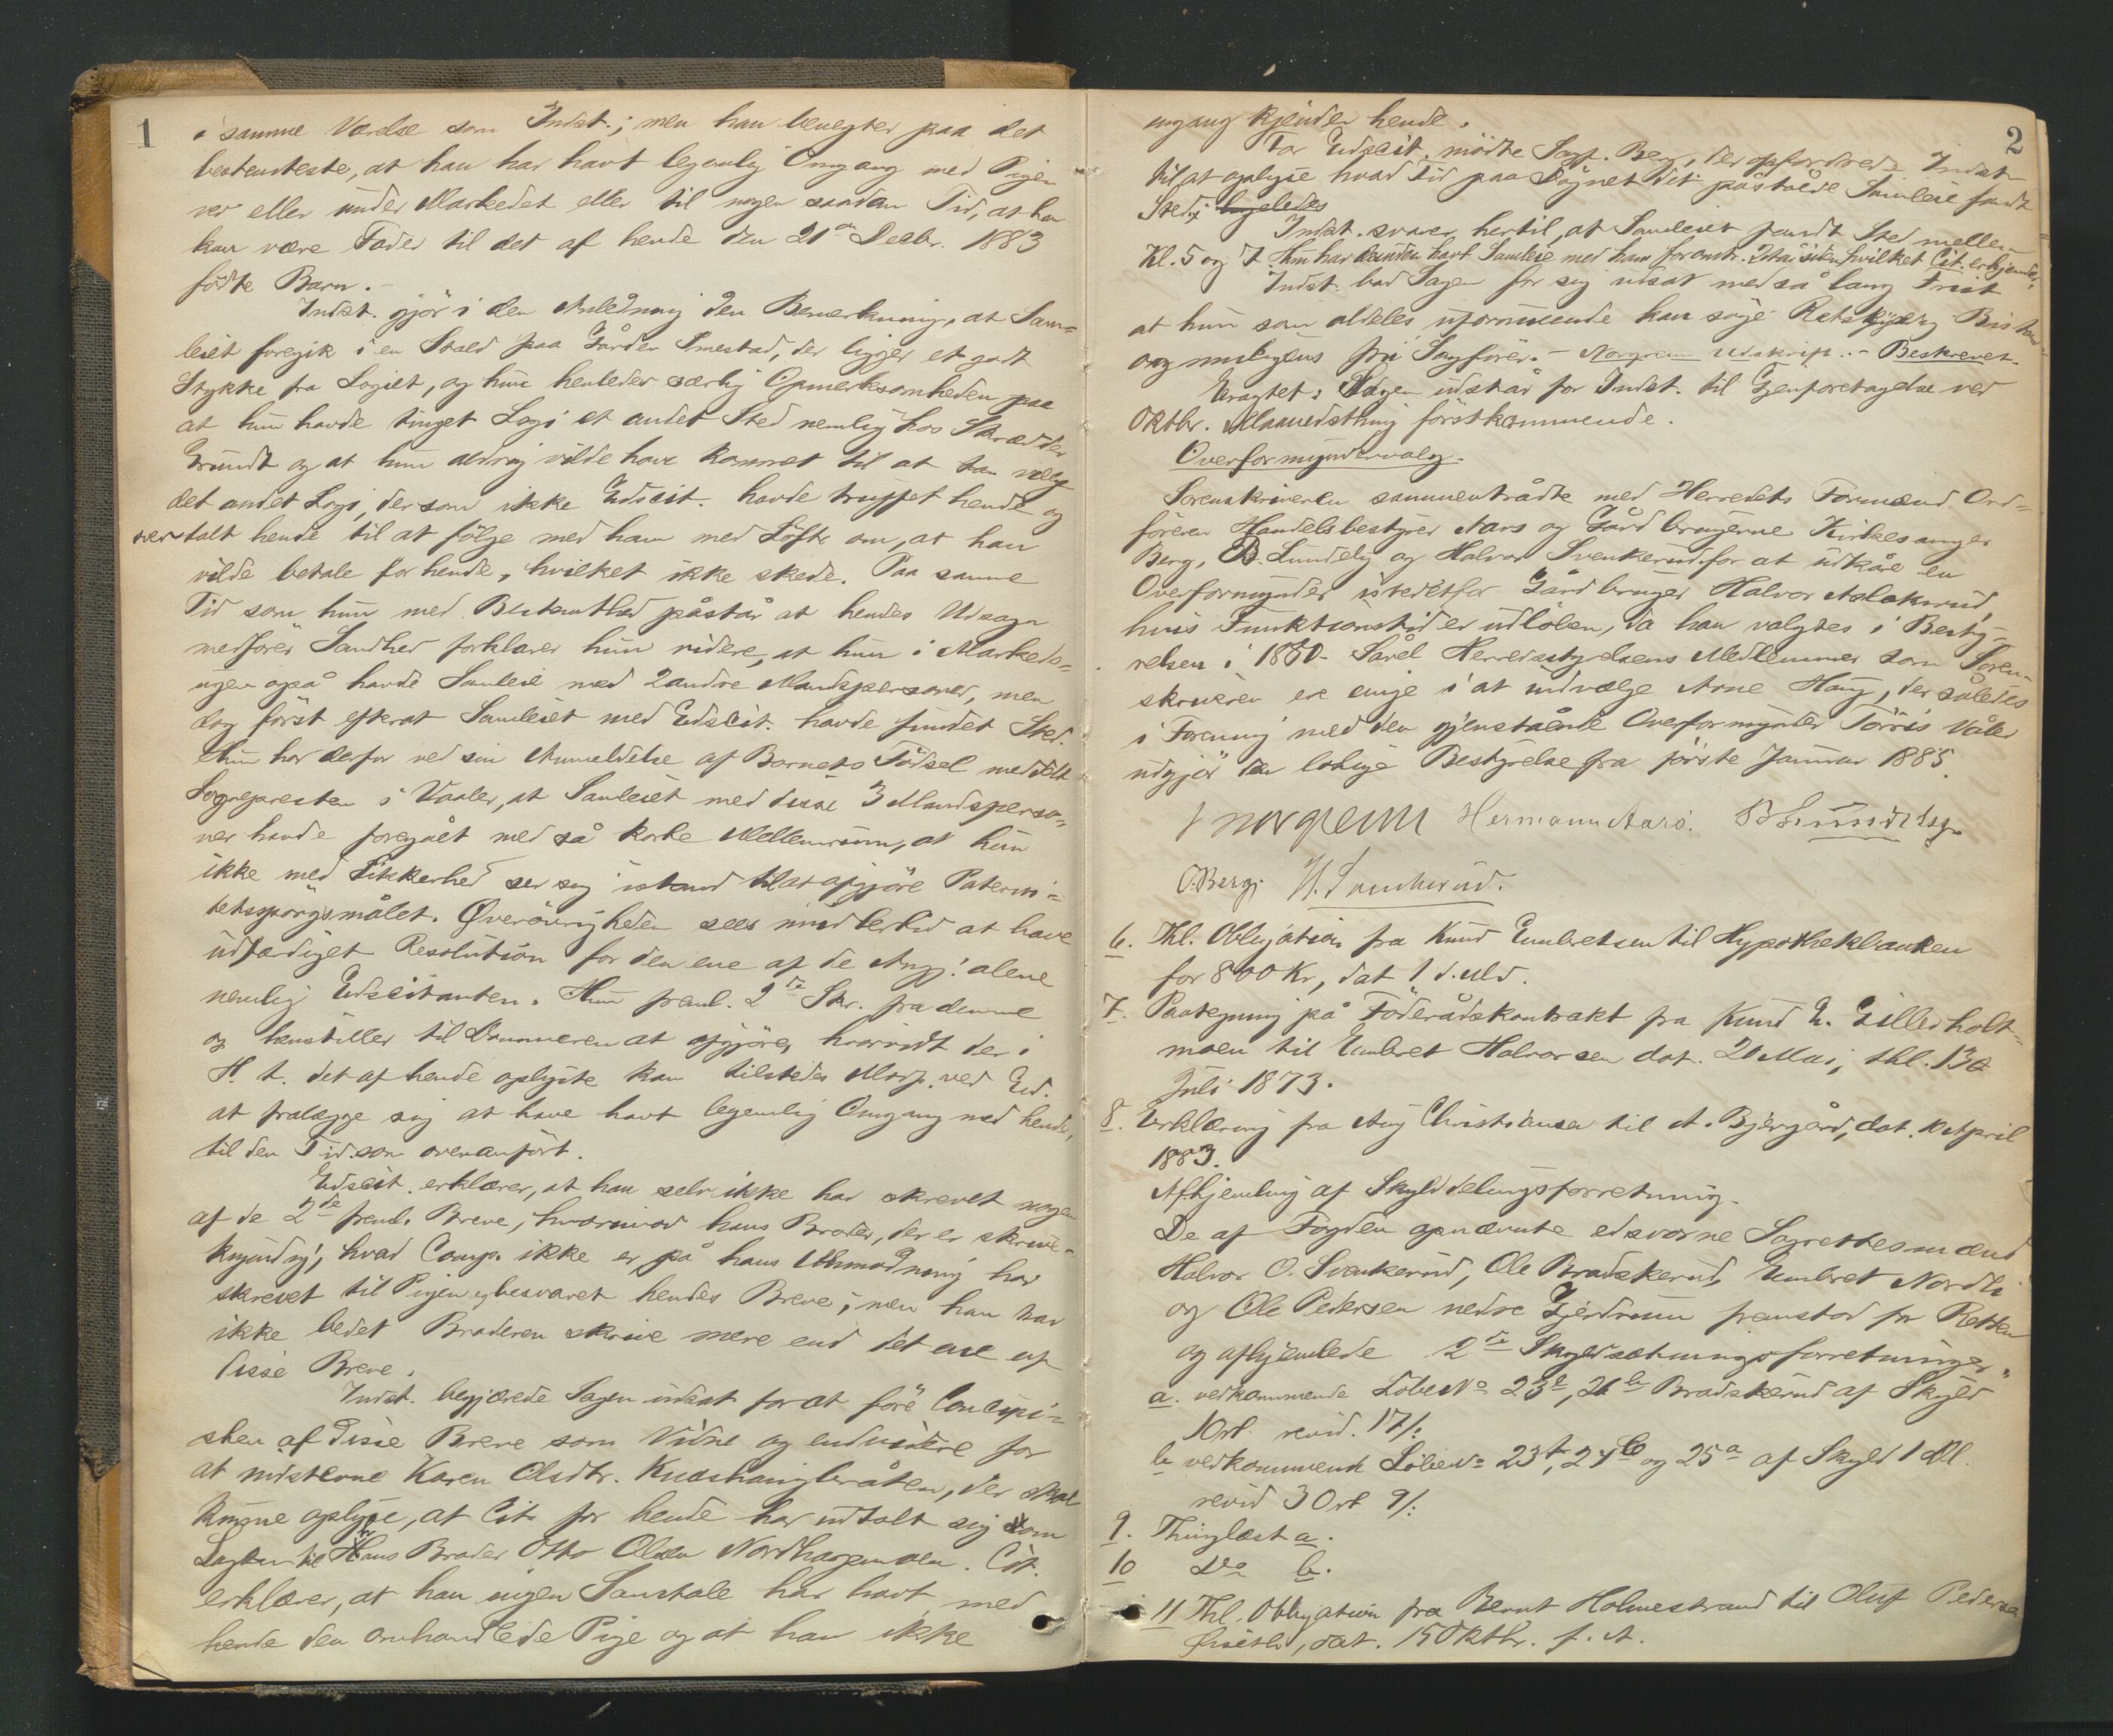 1
i samme Værelse som Indst.; men han benegter paa det
bestemteste, at han har havt legemlig Omgang med Pigen
ved eller under Markedet eller til nogen saadan Tid, at han
kan være Fader til det af hende den 21de Decbr. 1883
födte Barn. -
Indst. gjör i den Anledning den Bemerkning, at Sam-
leiet foregik i en Stald paa Gården Imestad, der ligger et godt
Stykke fra Logiet, og hun henleder særlig Opmerksomheden paa
at hun havde tinget Logi et andet Sted nemlig hos Skrædder
Grundt og at hun aldrig vilde have kommet til at tage
det andet Logi, dersom ikke Indcit. havde truffet hende og
overtalt hende til at fölge med ham med Löfte om, at han
vilde betale for hende, hvilket ikke skede. Paa samme
Tid som hun med Bestemthed påstår at hendes Udsagn
medförer Sandhed forklarer hun videre, at hun i Markeds-
ugen også havde Samleie med 2 andre Mandspersoner, men
dog först efterat Samleiet med Indcit. havde fundet Sted.
Hun har derfor ved sin Anmeldelse af Barnets Födsel meddelt
Sognepresten i Vaaler, at Samleiet med disse 3 Mandsperso-
ner havde foregået med så korte Mellemrum, at hun
ikke med Sikkerhed ser sig istand til at afgjöre Paterni-
tetsspörgsmålet. Överövrigheden sees imidlertid at have
udfærdiget Resolution for den ene af de Ang. alene
nemlig Indcitanten. Hun freml. 2de Skr. fra denne
og henstiller til Dommeren at afgjöre, hvorvidt der i
H. t. det af hende oplyste kan tilstedes Modp. ved Ed.
at fralægge sig at have havt legemlig Omgang med hende,
til den Tid som ovenanfört.
Indcit. erklærer, at han selv ikke har skrevet nogen
af de 2de freml. Breve, hvorimod hans Broder, der er skrive-
kyndig, hvad Comp. ikke er, på hans Anmodning har
skrevet til Pigen og besvaret hendes Breve; men han har
ikke bedet Broderen skrive mere end det ene af
disse Breve.
Indst. begjærede Sagen udsat for at före Concipi-
sten af disse Breve som Vidne og endvidere for
at indstevne Karen Olsdtr. der skal
kunne oplyse, at Cit. for hende har udtalt sig som
til Hans Broder Otto Olsen Nordhagenmoen. Cit.
erklærer, at han ingen Samtale har havt med
hende den omhandlede Pige og at han ikke
2
engang kjender hende.
For Indcit. mödte Sagf. Berg, der opfordrede Indst.
til at oplyse hvad Tid paa Dögnet det påståede Samleie fandt
Sted; ligeledes
Indst. svarer hertil, at Samleiet fandt Sted mellem
Kl. 5 og 7. Hun har desuden havt Samleie med ham for omtr. 2 År siden hvilket Cit. erkjender.
Indst. bad Sagen for sig udsat med så lang Frist
at hun som aldeles uformuende kan söge Retshjelp Bistand
og muligens fri Sagförer. - Norgrenn Udskrift. - Beskrevet.
Eragtet: Sagen udstår for Indst. til Gjenforetagelse ved
Oktbr. Maanedsthing förstkommende.
Overformyndervalg.
Sorenskriveren sammentrådte med Herredets Formænd Ord-
föreren Handelsbestyrer Aars og Gårdbrugerne Kirkesanger
Berg, B. Lundeby og Halvor Svenkerud for at udkåre en
Overformynder istedetfor Gårdbruger Halvor Aslakrud,
hvis Funktionstid er udlöben, da han valgtes i Besty-
relsen i 1880. Såvel Herredsstyrelsens Medlemmer som Soren-
skriveren ere enige i at udvælge Arne Haug, der således
i Forening med den gjenstående Overformynder Törris Våler
udgjör den lovlige Bestyrelse fra förste Januar 1885.
Norgrenn Hermann Aars. B Lundeby
O. Berg. H. Svenkerud.
6. Thl. Obligation fra Knud Embretsen til Hypothekbanken
for 800 Kr, dat 1 d. Md.
7. Paategning på Föderådskontrakt fra Knud E. Gillerholt-
moen til Embret Halvorsen dat. 20 Mai, thl. 13de
Juli 1873.
8. Erklæring fra Aug Christiansen til A. Bjergård, dat. 10 April
1883.
Afhjemling af Skylddelingsforretning.
De af Fogden opnævnte edsvorne Lagrettesmænd
Halvor O. Svenkerud, Ole Bradskerud, Embret Nordli
og Ole Pedersen nedre Gjerdrum fremstod for Retten
og afhjemlede 2de Skyldsætningsforretninger.
a. vedkommende LöbeNo 23e, 26b Bradskerud af Skyld
1 Ort. revid. 17/:
b vedkommende LöbeNo 23f, 24b og 25a af Skyld 1 Dl.
revid 3 Ort 9/:
9. Thinglæst a.
10 Do b.
11 Thl. Obligation fra Bernt Holmestrand til Oluf Pedersen
dat. 15 Oktbr. f. A.